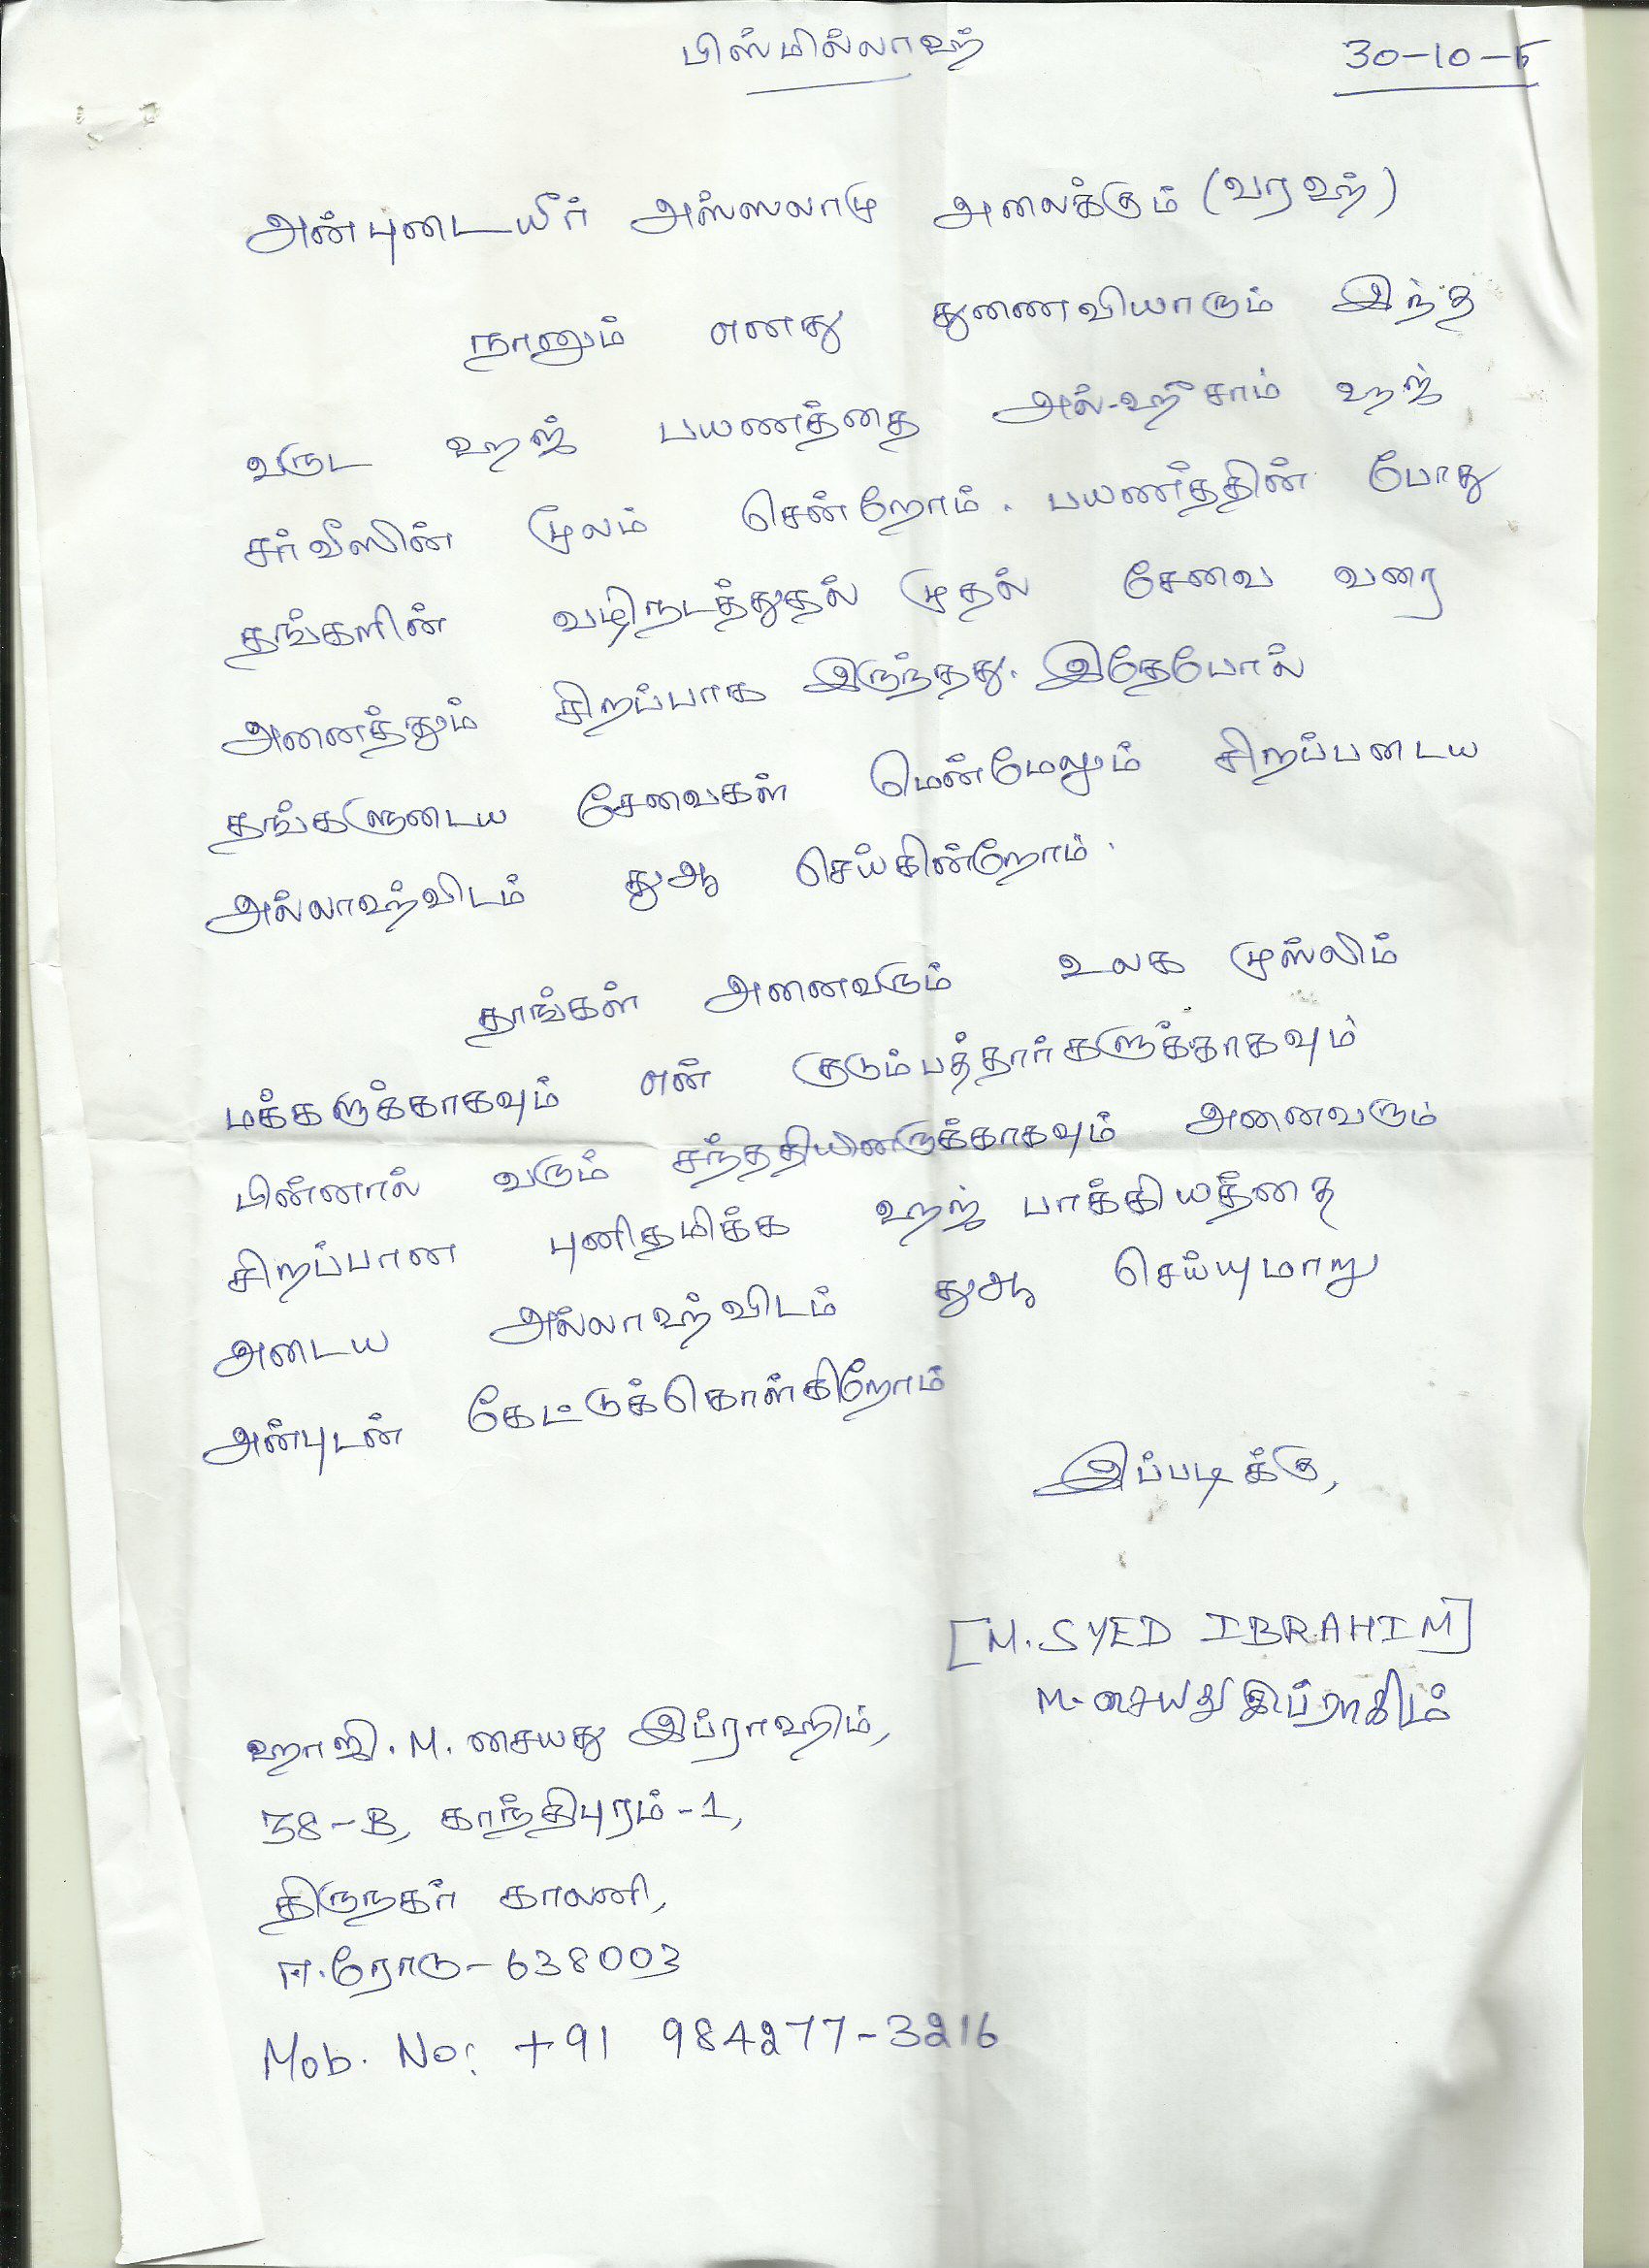 பிஸ்மில்லாஹ்
30-10-15
அன்புடையீர் அஸ்ஸலாமு அலைக்கும் (வரஹ்)
நானும் எனது துணைவியாரும் இந்த
வருட ஹஜ் பயணத்தை அல்-ஹீசாம் ஹஜ்
சர்வீஸின் மூலம் சென்றோம். பயணத்தின் போது
தங்களின் வழிநடத்துதல் முதல் சேவை வரை
அனைத்தும் சிறப்பாக இருந்தது. இதேபோல்
தங்களுடைய சேவைகள் மென்மேலும் சிறப்படைய
அல்லாஹ்விடம் துஆ செய்கின்றோம்.
தாங்கள் அனைவரும் உலக முஸ்லிம்
மக்களுக்காகவும் என் குடும்பத்தார்களுக்காகவும்
பின்னால் வரும் சந்ததியினருக்காகவும் அனைவரும்
சிறப்பான புனிதமிக்க ஹஜ் பாக்கியத்தை
அடைய அல்லாஹ்விடம் துஆ செய்யுமாறு
அன்புடன் கேட்டுக்கொள்கிறோம்
இப்படிக்கு,
[M. SYED IBRAHIM]
M. சையது இப்ராகிம்
ஹாஜி. M. சையது இப்ராஹிம்,
38-B, காந்திபுரம்-1,
திருநகர் காலனி,
ஈ.ரோடு-638003
Mob. No: +91 984277-3216